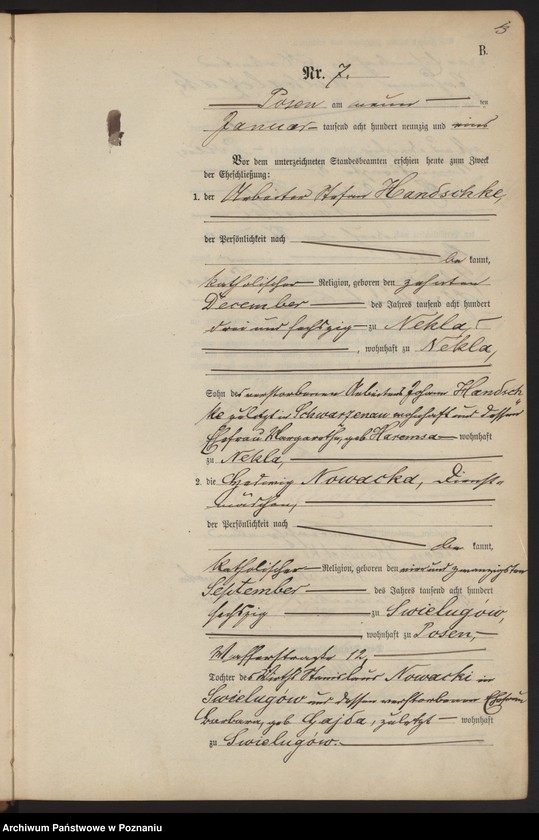 B.
Nr. 7.
Posen am neun ten
Januar tausend acht hundert neunzig und eins
Vor dem unterzeichneten Standesbeamten erschien heute zum Zweck
der Eheschließung:
1. der Arbeiter Stefan Handschke,
der Persönlichkeit nach
be kannt,
katholischer Religion, geboren den zehnten
December des Jahres tausend acht hundert
drei und sechszig zu Nekla,
, wohnhaft zu Nekla,
Sohn des verstorbenen Arbeiters Johann Handsch
ke zuletzt in Schwarzenau wohnhaft und dessen
Ehefrau Margarethe, geb. Haremsa wohnhaft
zu Nekla,
2. die Hedwig Nowacka, Dienst-
mädchen,
der Persönlichkeit nach
be kannt,
katholischer Religion, geboren den vier und zwanzigsten
September des Jahres tausend acht hundert
sechszig zu Swielugów,
, wohnhaft zu Posen,
Wasserstraße 12,
Tochter des Wirths Stanislaus Nowacki in
Swielugów und dessen verstorbenen Ehefrau
Barbara, geb. Gajda, zuletzt wohnhaft
zu Swielugów.
Archiwum Państwowe w Poznaniu